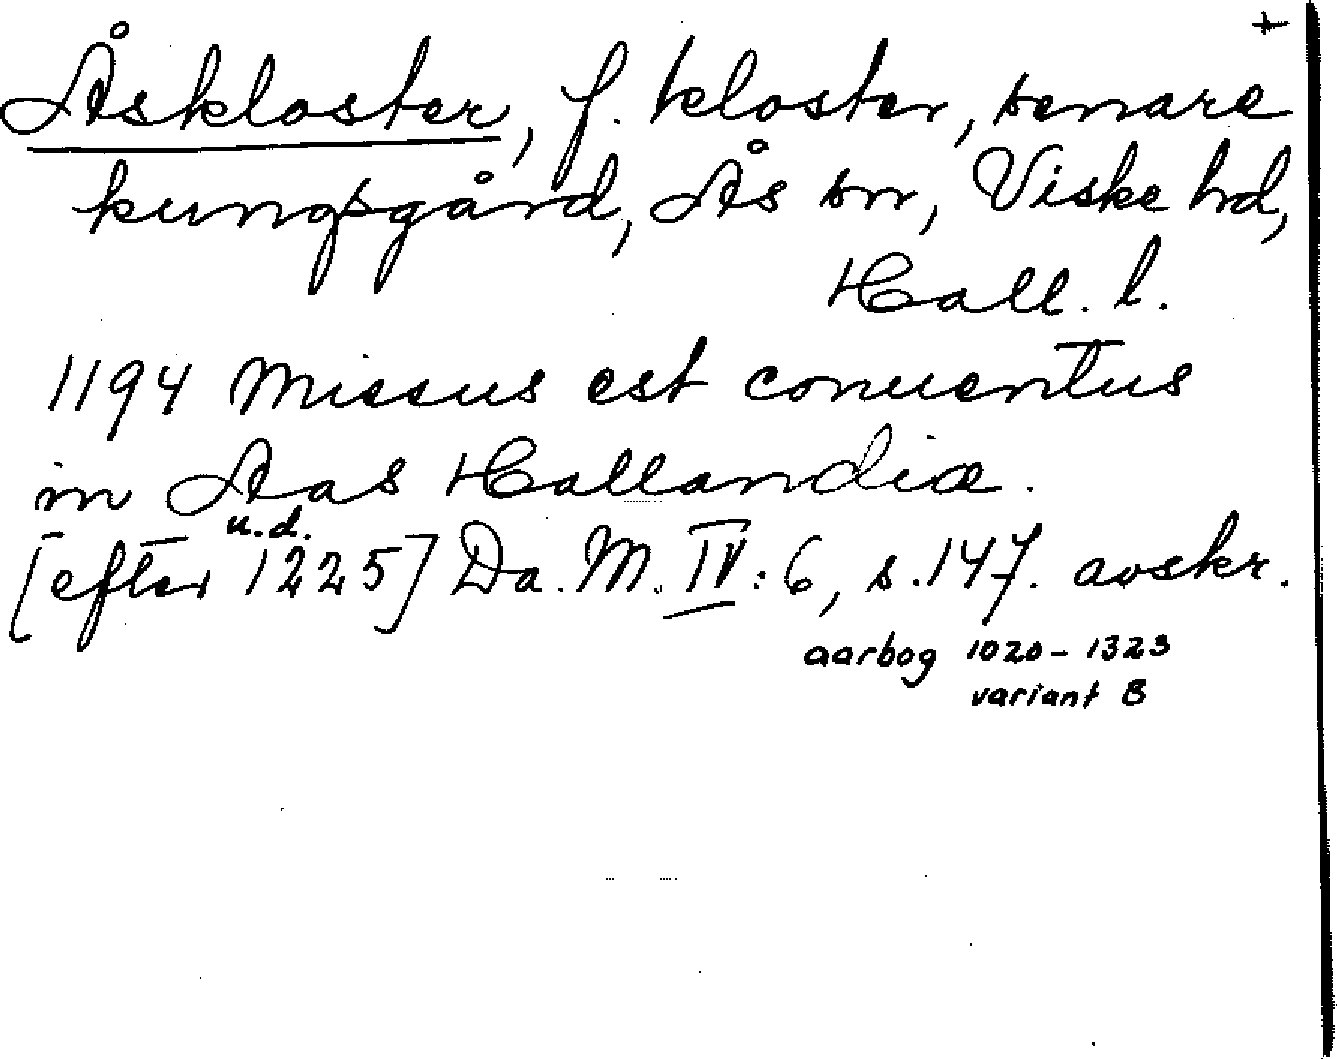 +
Åskloster, f. kloster, senare
kungsgård, Ås sn, Viske hd,
Hall. l.
1194 Missus est conuentus
in Aas Hallandiæ.
u.d.
[efter 1225] Da. M. IV: 6, s. 147. avskr.
aarbog 1020-1323
variant B